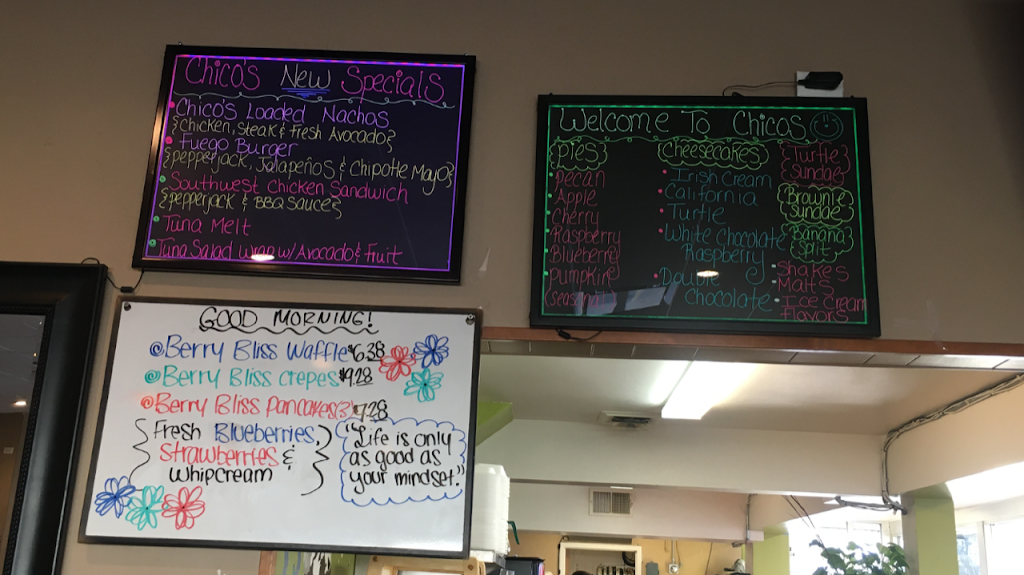 Chico's New Specials
Chico's Loaded Nachos
{Chicken, Steak & Fresh Avocado}
Fuego Burger
{pepperjack, Jalapeños & Chipotle Mayo}
Southwest Chicken Sandwich
{pepperjack & BBQ Sauce}
Tuna Melt
Tuna Salad wrap w/ Avocado & Fruit
Welcome To Chicos
Pies
Pecan
Apple
Cherry
Raspberry
Blueberry
Pumpkin
Cheesecakes
Irish Cream
California
Turtle
White Chocolate
Raspberry
Double
Chocolate
Turtle
Sundae
Brownie
Sundae
Banana
Split
Shakes
Malts
Ice Cream
Flavors
GOOD MORNING!
@Berry Bliss Waffle $6.38
@Berry Bliss crepes $9.28
@Berry Bliss Pancakes(3) $7.28
Fresh Blueberries,
Strawberries &
whipcream
"Life is only
as good as
your mindset."